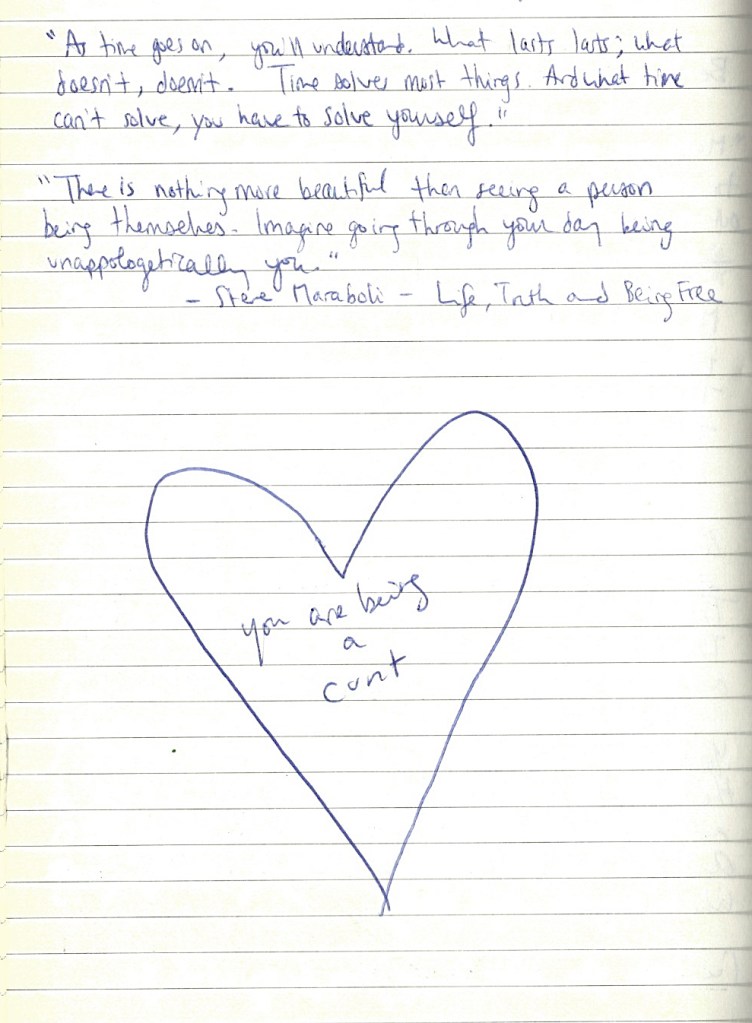 "As time goes on, you'll understand. What lasts lasts; what
doesn't, doesn't. Time solves most things. And what time
can't solve, you have to solve yourself."
"There is nothing more beautiful than seeing a person
being themselves. Imagine going through your day being
unappologetically you."
- Steve Maraboli - Life, Truth and Being Free
you are being
a
cunt